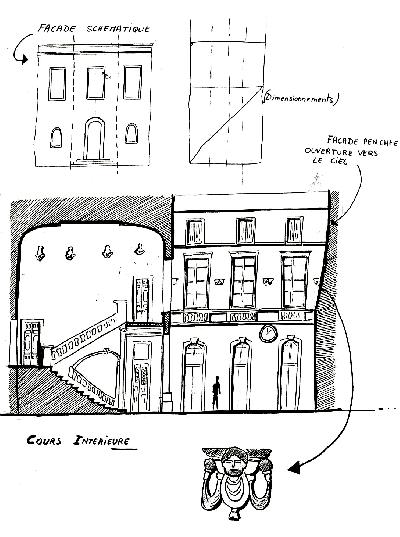 FACADE SCHEMATIQUE
(Dimensionnements)
FACADE PENCHEE
OUVERTURE VERS
LE CIEL
COURS INTERIEURE